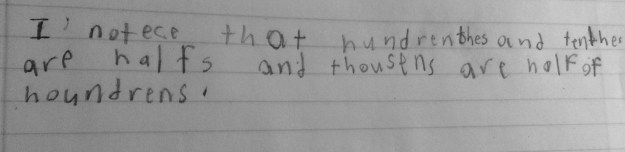 I' notece that hundrenthes and tenthes
are halfs and thousens are half of
houndrens.